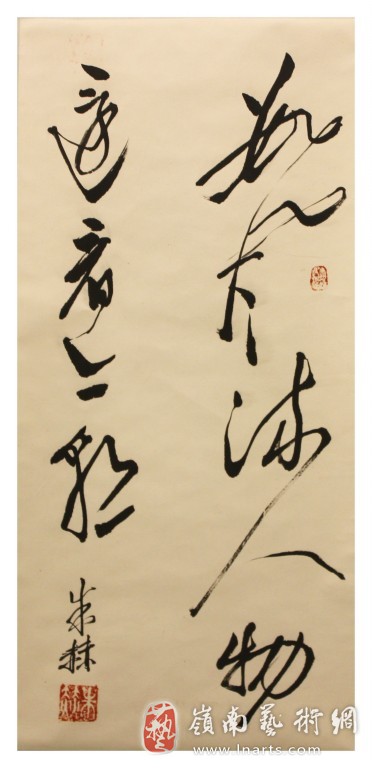 數風流人物
還看今朝
嶺南藝術網
www.lnarts.com